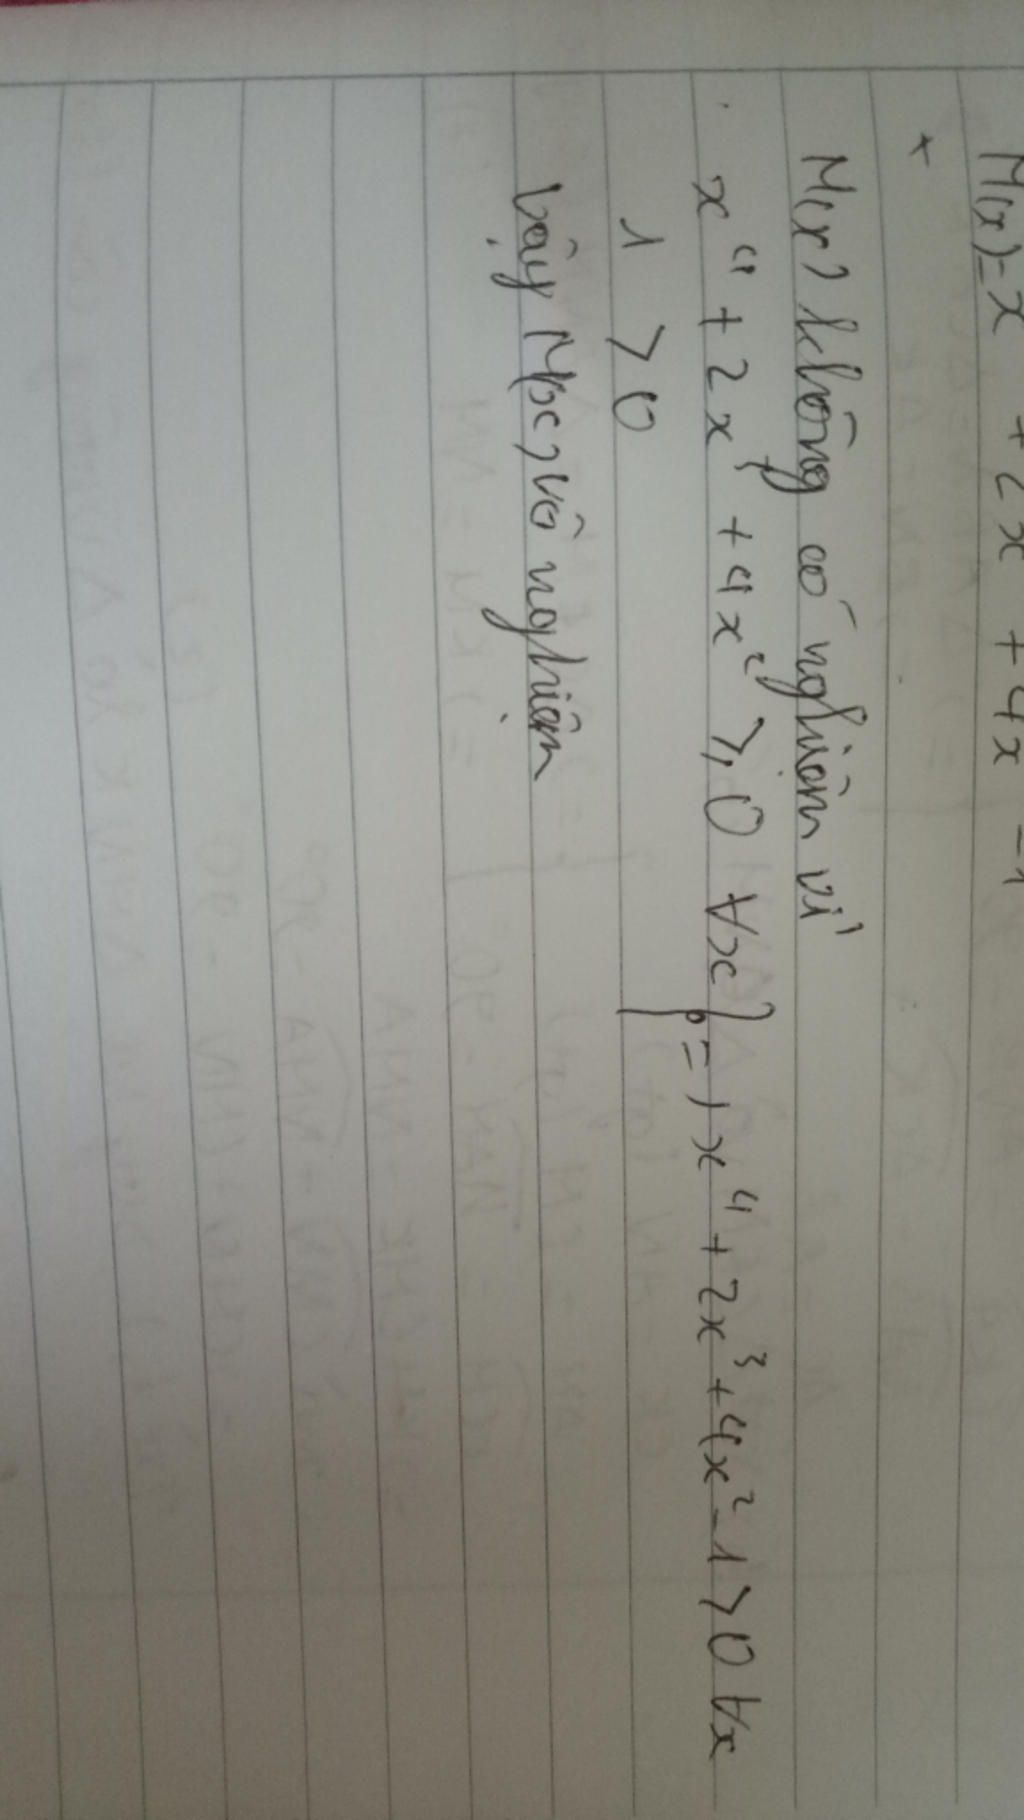 M(x)=x + 2x + 4x - 1
*
M(x) không có nghiệm vì
x⁴ + 2x³ + 4x² ≥ 0 ∀x } => x⁴ + 2x³ + 4x² - 1 > 0 ∀x
1 > 0
Vậy M(x) vô nghiệm